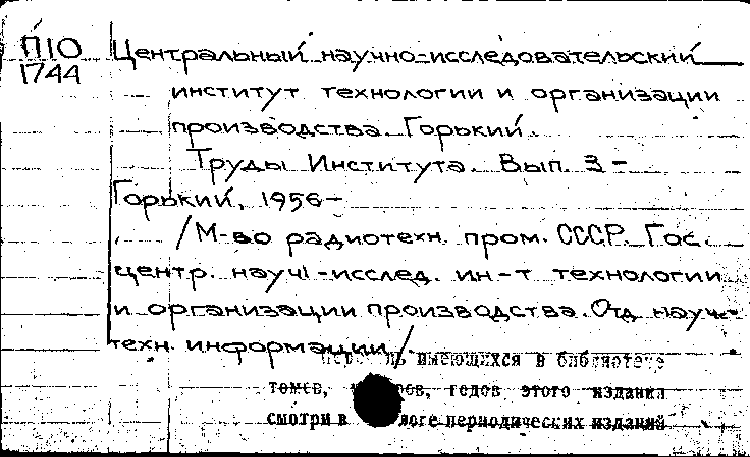 П10
1744
Центральный научно-исследовательский
институт технологии и организации
производства. Горький.
Труды Института. Вып. 3-
Горький, 1956-
/М-во радиотехн. пром. СССР. Гос.
центр. научн-исслед. ин-т технологии
и организации производства. Отд. научн-
техн. информации/.
имеющихся в библиотеке
томов, годов этого издания
смотри в периодических изданий